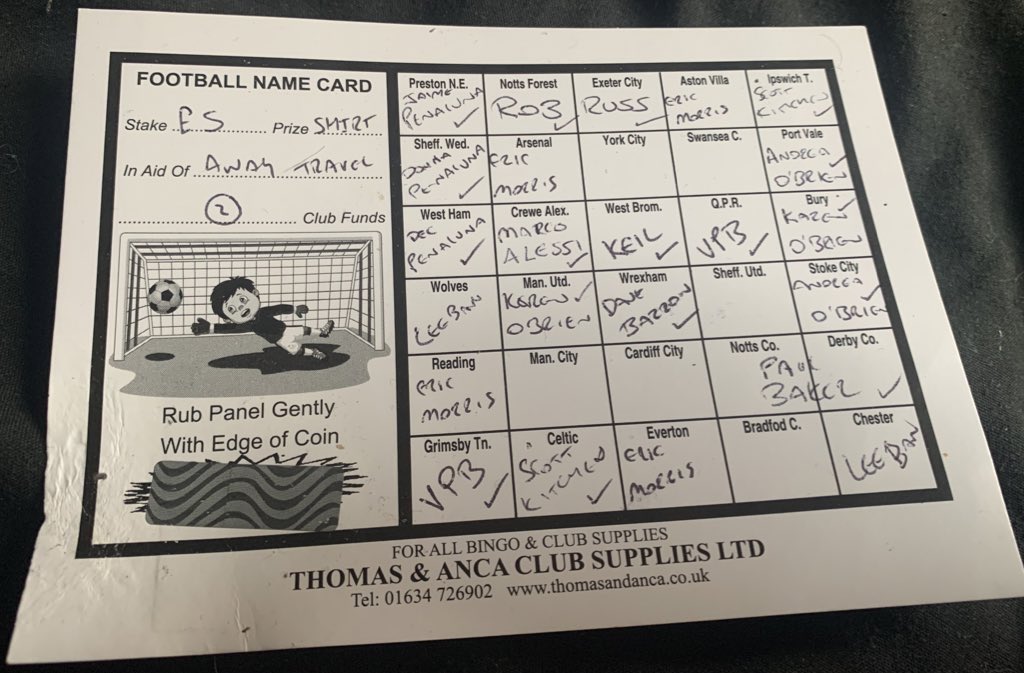 FOOTBALL NAME CARD
Stake £5 Prize SHIRT
In Aid Of AWAY TRAVEL
2 Club Funds
Rub Panel Gently
With Edge of Coin
Preston N.E.
JAIME
PENALUNA ✓
Notts Forest
ROB ✓
Exeter City
RUSS ✓
Aston Villa
ERIC
MORRIS
Ipswich T.
SCOTT
KITCHED ✓
Sheff. Wed.
DONNA
PENALUNA ✓
Arsenal
ERIC
MORRIS
York City
Swansea C.
Port Vale
ANDREA ✓
O'BRIEN
West Ham
DEC
PENALUNA ✓
Crewe Alex.
MARCO
ALESSI ✓
West Brom.
KEIL ✓
Q.P.R.
VPB ✓
Bury
KAREN ✓
O'BRIEN
Wolves
LEE BAN
Man. Utd.
KAREN ✓
O'BRIEN
Wrexham
DAVE
BARRON ✓
Sheff. Utd.
Stoke City
ANDREA ✓
O'BRIEN
Reading
ERIC
MORRIS
Man. City
Cardiff City
Notts Co.
Derby Co.
PAUL
BAKER ✓
Grimsby Tn.
VPB ✓
Celtic
SCOTT
KITCHED ✓
Everton
ERIC
MORRIS
Bradfod C.
Chester
LEE BAN
FOR ALL BINGO & CLUB SUPPLIES
THOMAS & ANCA CLUB SUPPLIES LTD
Tel: 01634 726902 www.thomasandanca.co.uk